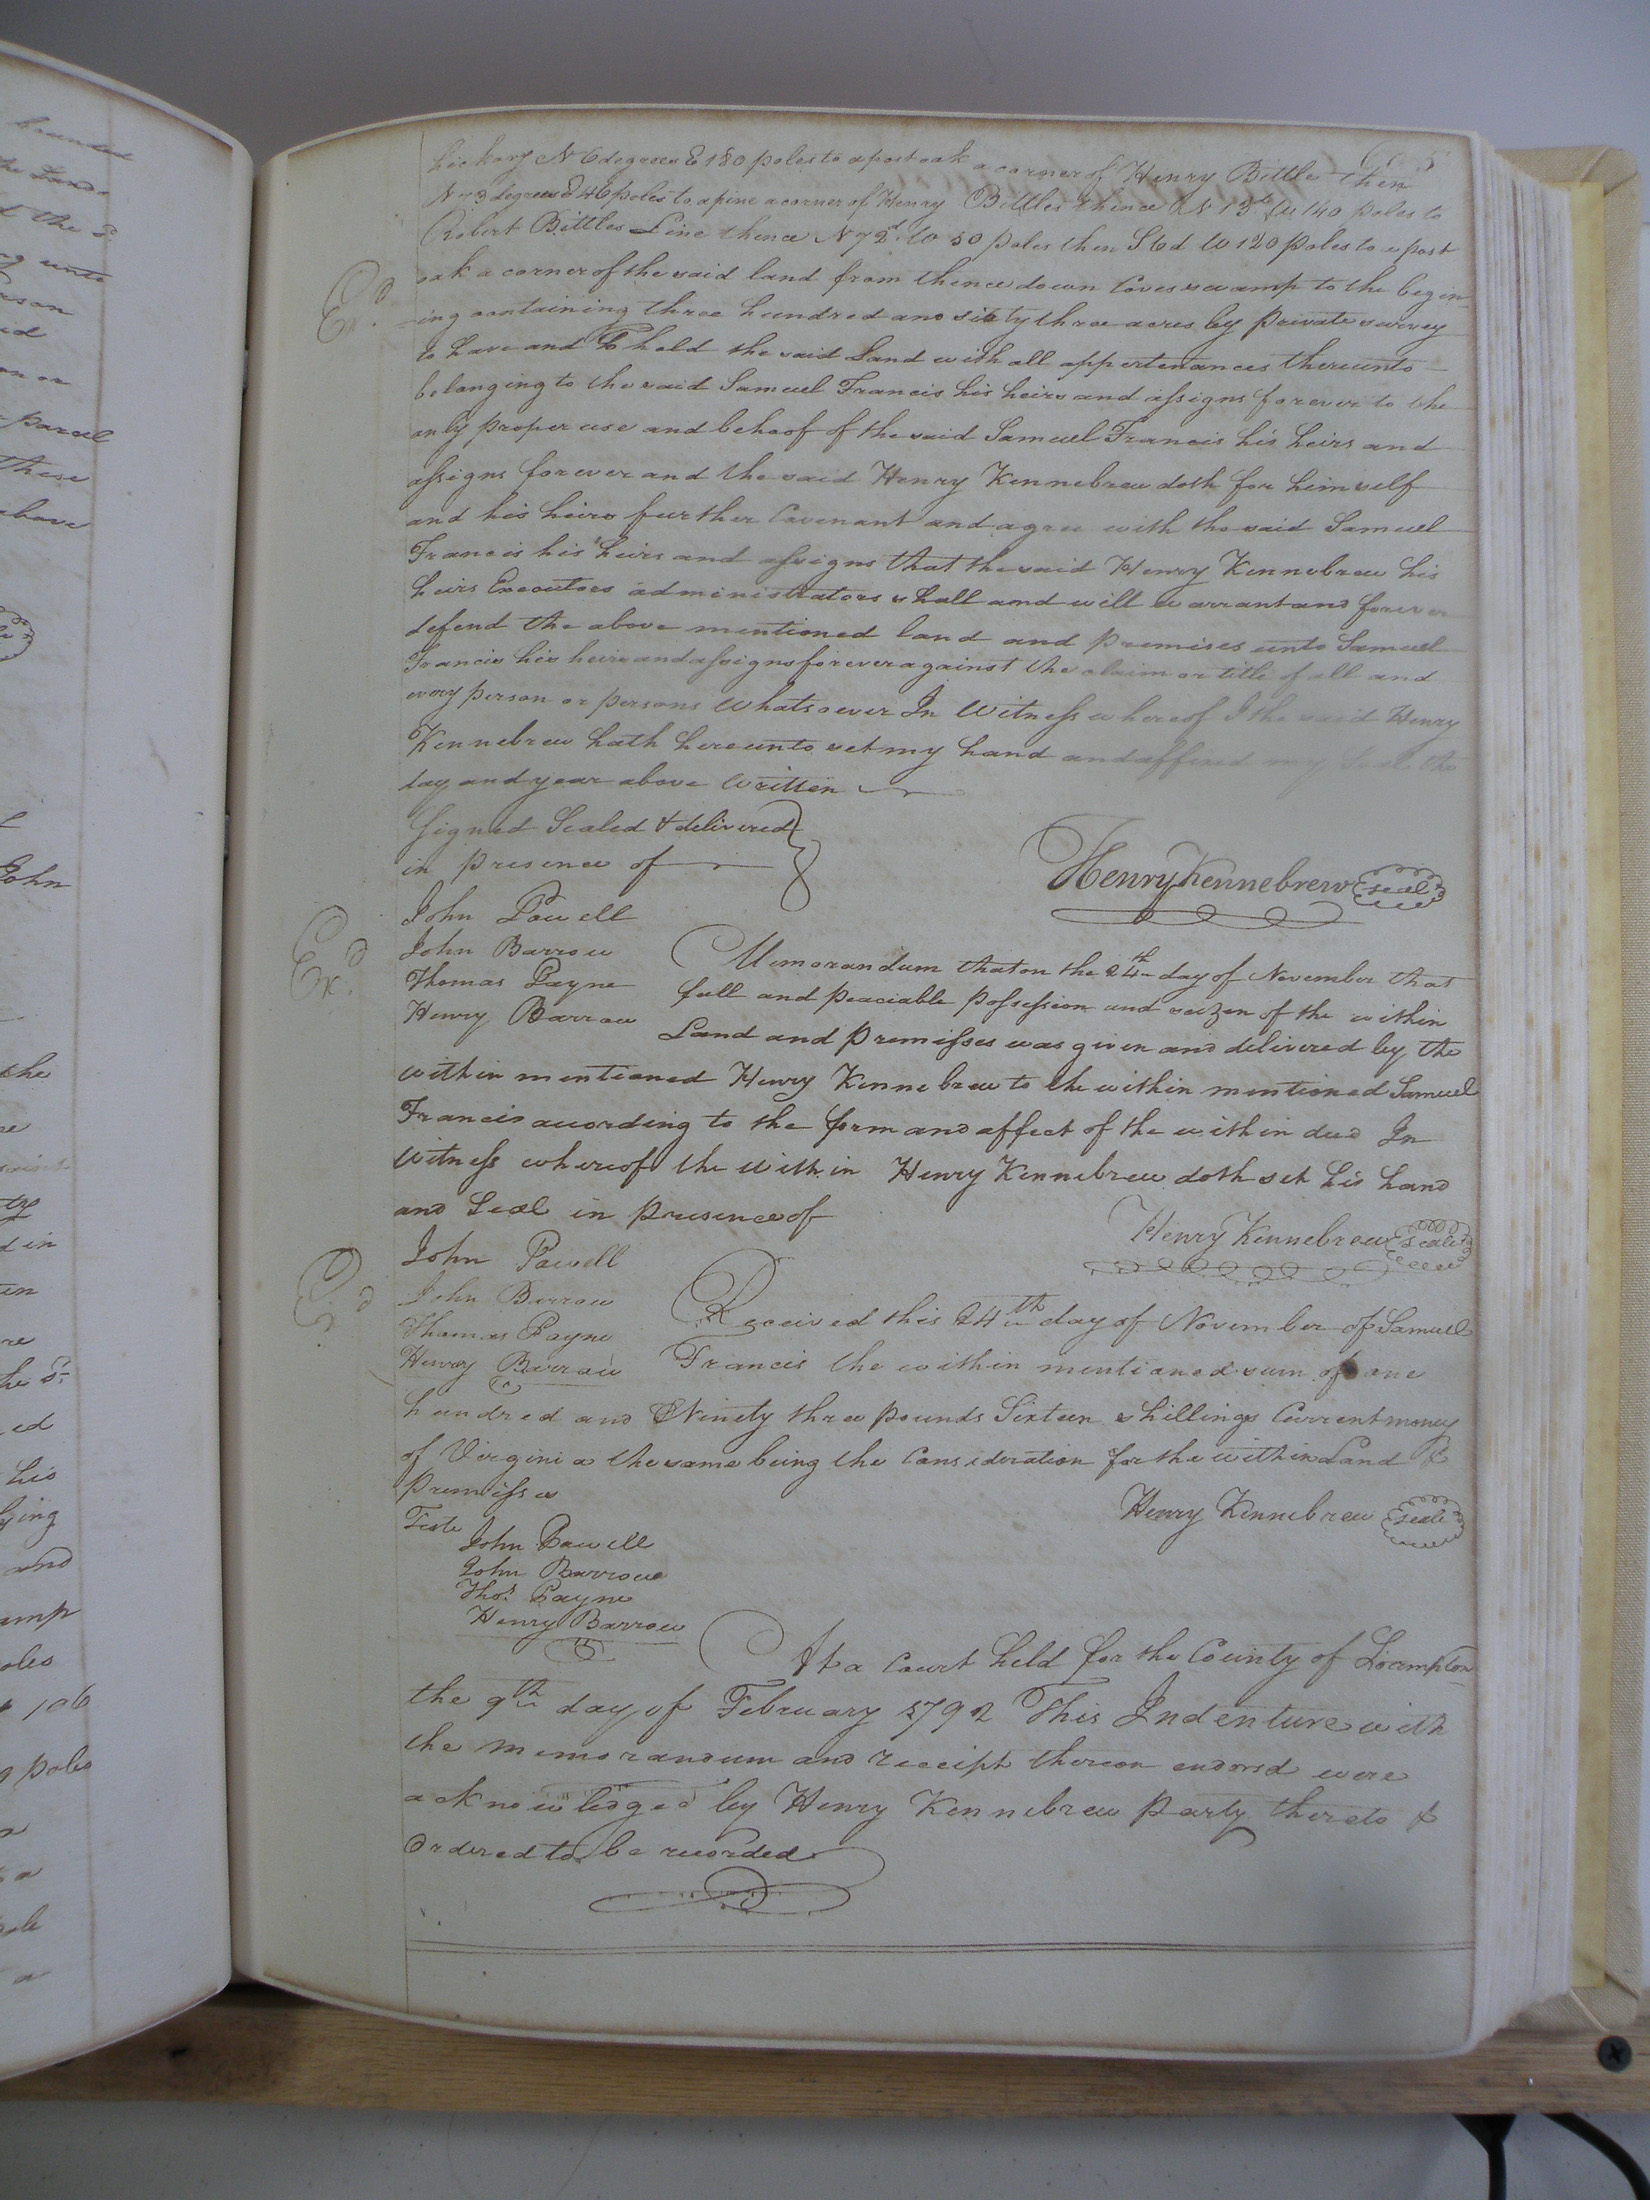 605
hickory N 6 degrees E 180 poles to a post oak a corner of Henry Bittle then
N 73 degrees E 46 poles to a pine a corner of Henry Bittles thence N 13 d W 140 poles to
Robert Bittles Line thence N 72 d W 50 poles then S 6 d W 120 poles to a post
oak a corner of the said land from thence down Coves swamp to the begin
ing containing three hundred and sixty three acres by private survey
to have and to hold the said Land with all appertenances thereunto
belonging to the said Samuel Francis his heirs and assigns forever to the
only proper use and behoof of the said Samuel Francis his heirs and
assigns forever and the said Henry Kennebrew doth for himself
and his heirs further Covenant and agree with the said Samuel
Francis his heirs and assigns that the said Henry Kennebrew his
heirs Executors administrators shall and will warrant and forever
defend the above mentioned land and premises unto Samuel
Francis his heirs and assigns forever against the claim or title of all and
every person or persons Whatsoever In Witness whereof I the said Henry
Kennebrew hath hereunto set my hand and affixed my Seal the
day and year above written
Signed Sealed & delivered
in presence of
Henry Kennebrew seal
John Powell
John Barrow
Thomas Payne
Henry Barrow
Memorandum that on the 24th day of November that
full and peaciable possession and seizen of the within
Land and premisses was given and delivered by the
within mentioned Henry Kennebrew to the within mentioned Samuel
Francis according to the form and affect of the within deed In
Witness whereof the within Henry Kennebrew doth set his hand
and Seal in presence of
Henry Kennebrew seal
John Powell
John Barrow
Thomas Payne
Henry Barrow
Received this 24th day of November of Samuel
Francis the within mentioned sum of one
hundred and Ninety three pounds Sixteen shillings Current money
of Virginia the same being the Consideration for the within Land &
premisses
Henry Kennebrew seal
Teste
John Powell
John Barrow
Thos. Payne
Henry Barrow
At a Court held for the County of Soampton
the 9th day of February 1792 This Indenture with
the memorandum and receipt thereon endorsd were
acknowledged by Henry Kennebrew party thereto &
Ordered to be recorded
Exd.
Exd.
bounded
the Land
parcel
these
above
John
the
in
ed
his
lying
and
poles
106
poles
a
a